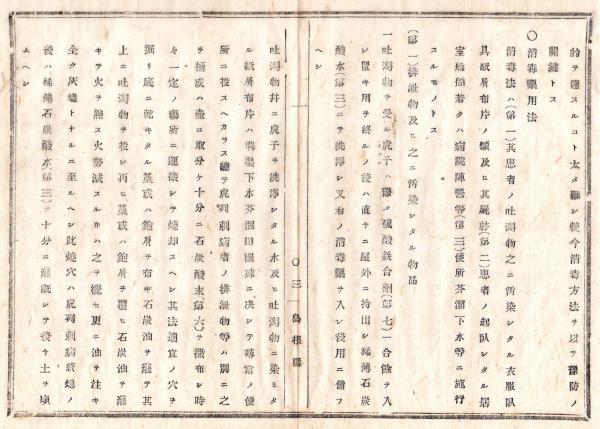 的ヲ達スルコト太タ難シ輓今消毒方法ヲ以テ豫防ノ
關鍵トス
〇消毒藥用法
消毒法ハ(第一)其患者ノ吐瀉物之ニ汚染シタル衣服臥
具紙屑布片ノ類及ヒ其屍(第二)患者ノ起臥シタル居
室船艙若クハ病院陣營等(第三)便所芥溜下水等ニ施行
スルモノトス
(第一)排泄物及ヒ之ニ汚染シタル物品
一吐瀉物ヲ受ル虎子ハ豫メ硫酸鉄合劑(第七)一合餘ヲ入
レ置キ用ヲ終ルノ後ハ直チニ屋外ニ持出シ稀薄石炭
酸水(第三)ニテ洗淨シ又右ノ消毒藥ヲ入レ後用ニ備フ
ヘシ
〇三 島根縣
吐瀉物幷ニ虎子ヲ洗淨シタル水及ヒ吐瀉物ニ染ミタ
ル紙屑布片ハ溝渠下水芥溜田圃ニ决シテ尋常ノ便
所ニ投スヘカラス總テ虎列剌病者ノ排泄物等ハ別ニ之
ヲ桶或ハ壺ニ取分ケ十分ニ石炭酸末(第六)ヲ撒布シ時
々一定ノ塲所ニ運搬シテ燒却スヘシ其法適宜ノ穴ヲ
掘リ底ニ乾キタル藁或ハ鉋屑ヲ布キ石炭油ヲ灌テ其
上ニ吐瀉物ヲ投シ再ヒ藁或ハ鉋屑ヲ覆ヒ石炭油ヲ灌
キテ火ヲ點ス火勢減スルキハ之ヲ攪セ更ニ油ヲ注キ
全ク灰燼トナルニ至ルヘシ此燒穴ハ虎列剌病終熄ノ
後ハ稀薄石炭酸水(第三)ヲ十分ニ灌漑シテ後ケ土ヲ塡
ムヘシ